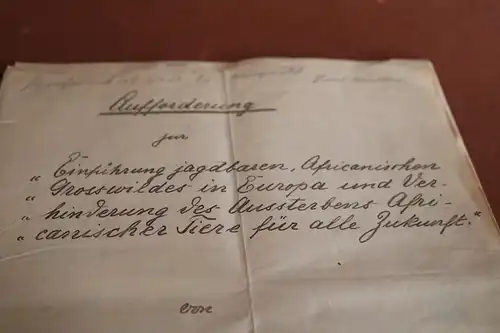 Aufforderung
zur
„Einführung jagdbaren, Africanischen
„Grosswildes in Europa und Ver-
„hinderung des Aussterbens Afri-
„canischer Tiere für alle Zukunft."
von